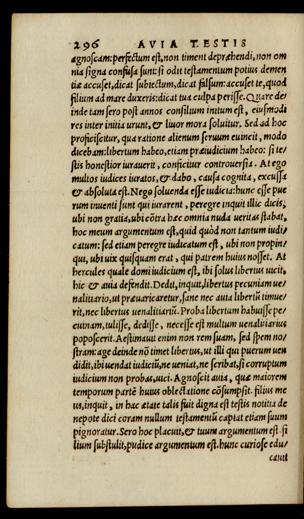 296 AVIA TESTIS
agnoscam: perfectum est, non timent depræhendi, non om
nia signa confusa sunt: si odit testamentum potius demen
tiæ accuset, dicat subiectum, dicat falsum: accuset te, quod
filium ad mare duxeris: dicat tua culpa perisse. Quare de/
inde tam sero post annos consilium initum est, eiusmodi
res inter initia urunt, & liuor mora soluitur. Sed ad hoc
proficiscitur, qua ratione alienum seruum euincit, modo
dicebam: libertum habeo, etiam præiudicium habeo: si te/
stis honestior iurauerit, conficitur controuersia. At ego
multos iudices iuratos, & dabo, causa cognita, excussa
& absoluta est. Nego soluenda esse iudicta: hunc esse pue
rum inuenti sunt qui iurarent, peregre inquit illic dicis;
ubi non gratia, ubi cõtra hæc omnia nuda ueritas stabat,
hoc meum argumentum est, quid quòd non tantum iudi/
catum: sed etiam peregre iudicatum est, ubi non propin/
qui, ubi uix quisquam erat, qui patrem huius nosset. At
hercules quale domi iudicium est, ibi solus libertus uicit,
hic & auia defendit. Dedit, inquit, libertus pecuniam ue/
nalitiario, ut præuaricaretur, sane nec auia libertũ timue/
rit, nec libertus uenalitiariũ. Proba libertum habuisse pe/
cuniam, tulisse, dedisse, necesse est multum uenalitiarius
poposcerit. Aestimauit enim non rem suam, sed spem no/
stram: age deinde nõ timet libertus, ut illi qui puerum uen
didit, ibi uendat iudiciũ, ne ueniat, ne scribat, si corruptum
iudicium non probas, uici. Agnoscit auia, quæ maiorem
temporum partẽ huius oblectatione cõsumpsit. filius me
us, inquit, in hac ætate talis fuit digna est testis notitia de
nepote dici coram nullum testamentũ captat etiam suum
pignoratur. Sero hoc placuit, & tuum argumentum est. fi
lium substulit, pudice argumentum est. hunc curiose edu/
cauit